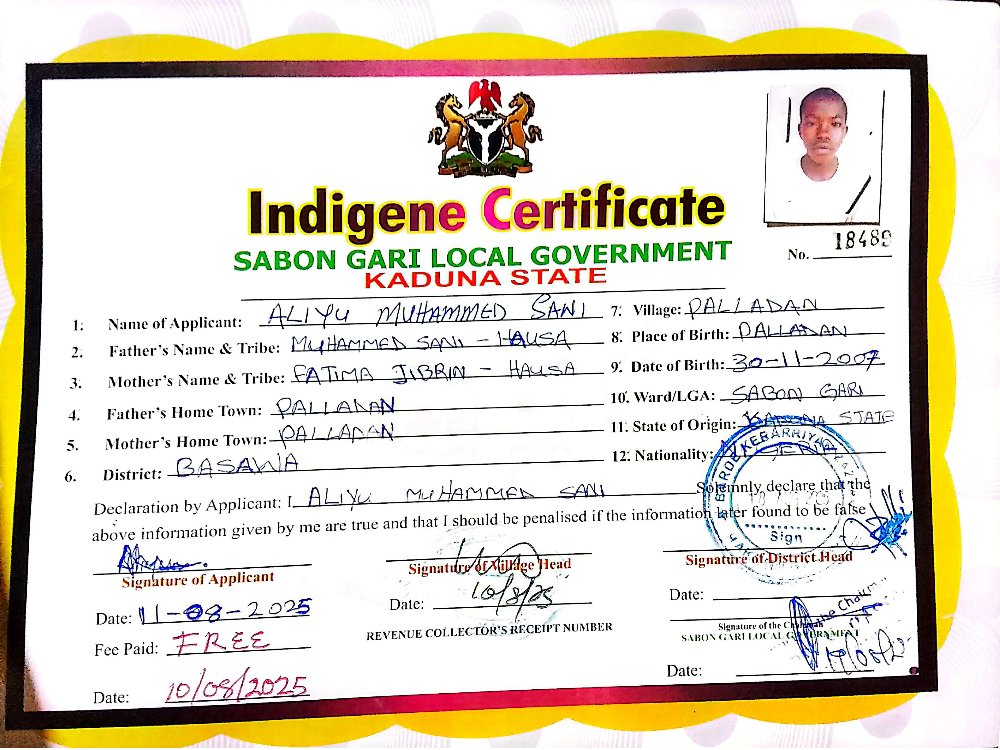 Indigene Certificate
SABON GARI LOCAL GOVERNMENT
KADUNA STATE
No. 18489
1. Name of Applicant: ALIYU MUHAMMED SANI
2. Father's Name & Tribe: MUHAMMED SANI - HAUSA
3. Mother's Name & Tribe: FATIMA JIBRIN - HAUSA
4. Father's Home Town: PALLADAN
5. Mother's Home Town: PALLADAN
6. District: BASAWA
7. Village: PALLADAN
8. Place of Birth: PALLADAN
9. Date of Birth: 30-11-2007
10. Ward/LGA: SABON GARI
11. State of Origin: KADUNA STATE
12. Nationality:
Declaration by Applicant: I, ALIYU MUHAMMED SANI Solemnly declare that the
above information given by me are true and that I should be penalised if the information later found to be false
Signature of Applicant
Date: 11-08-2025
Fee Paid: FREE
Date: 10/08/2025
Signature of Village Head
Date: 10/8/25
REVENUE COLLECTOR'S RECEIPT NUMBER
Sign
Signature of District Head
Date:
Signature of the Chairman
SABON GARI LOCAL GOVERNMENT
Date: